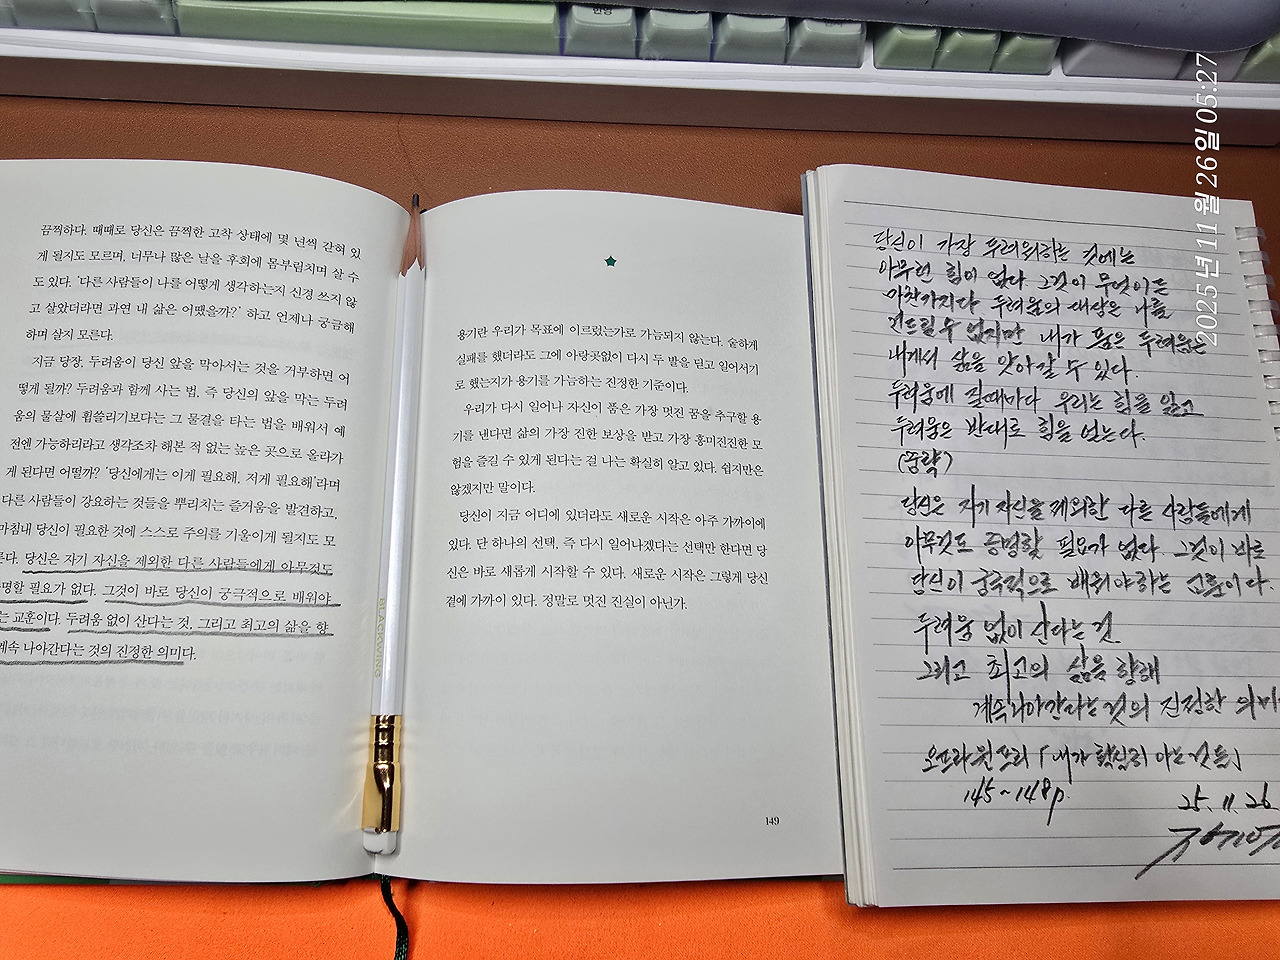 끔찍하다. 때때로 당신은 끔찍한 고착 상태에 몇 년씩 갇혀 있
게 될지도 모르며, 너무나 많은 날을 후회에 몸부림치며 살 수
도 있다. ‘다른 사람들이 나를 어떻게 생각하는지 신경 쓰지 않
고 살았더라면 과연 내 삶은 어땠을까?’ 하고 언제나 궁금해
하며 살지 모른다.
지금 당장, 두려움이 당신 앞을 막아서는 것을 거부하면 어
떻게 될까? 두려움과 함께 사는 법, 즉 당신의 앞을 막는 두려
움의 물살에 휩쓸리기보다는 그 물결을 타는 법을 배워서 예
전엔 가능하리라고 생각조차 해본 적 없는 높은 곳으로 올라가
게 된다면 어떨까? ‘당신에게는 이게 필요해, 저게 필요해’라며
다른 사람들이 강요하는 것들을 뿌리치는 즐거움을 발견하고,
마침내 당신이 필요한 것에 스스로 주의를 기울이게 될지도 모
른다. 당신은 자기 자신을 제외한 다른 사람들에게 아무것도
명할 필요가 없다. 그것이 바로 당신이 궁극적으로 배워야
는 교훈이다. 두려움 없이 산다는 것, 그리고 최고의 삶을 향
계속 나아간다는 것의 진정한 의미다.
BLACKWING
용기란 우리가 목표에 이르렀는가로 가늠되지 않는다. 숱하게
실패를 했더라도 그에 아랑곳없이 다시 두 발을 딛고 일어서기
로 했는지가 용기를 가늠하는 진정한 기준이다.
우리가 다시 일어나 자신이 품은 가장 멋진 꿈을 추구할 용
기를 낸다면 삶의 가장 진한 보상을 받고 가장 흥미진진한 모
험을 즐길 수 있게 된다는 걸 나는 확실히 알고 있다. 쉽지만은
않겠지만 말이다.
당신이 지금 어디에 있더라도 새로운 시작은 아주 가까이에
있다. 단 하나의 선택, 즉 다시 일어나겠다는 선택만 한다면 당
신은 바로 새롭게 시작할 수 있다. 새로운 시작은 그렇게 당신
곁에 가까이 있다. 정말로 멋진 진실이 아닌가.
149
당신이 가장 두려워하는 것에는
아무런 힘이 없다 그것이 무엇이든
마찬가지다 두려움의 대상은 나를
건드릴 수 없지만 내가 품은 두려움은
내게서 삶을 앗아갈 수 있다.
두려움에 질때마다 우리는 힘을 잃고
두려움은 반대로 힘을 얻는다.
(중략)
당신은 자기 자신을 제외한 다른 사람들에게
아무것도 증명할 필요가 없다. 그것이 바로
당신이 궁극적으로 배워야하는 교훈이다.
두려움 없이 산다는 것.
그리고 최고의 삶을 향해
계속 나아간다는 것의 진정한 의미
오프라 윈프리 「내가 확실히 아는 것들」
145~148p.
25. 11. 26
2025년 11월 26일 05:27
한영